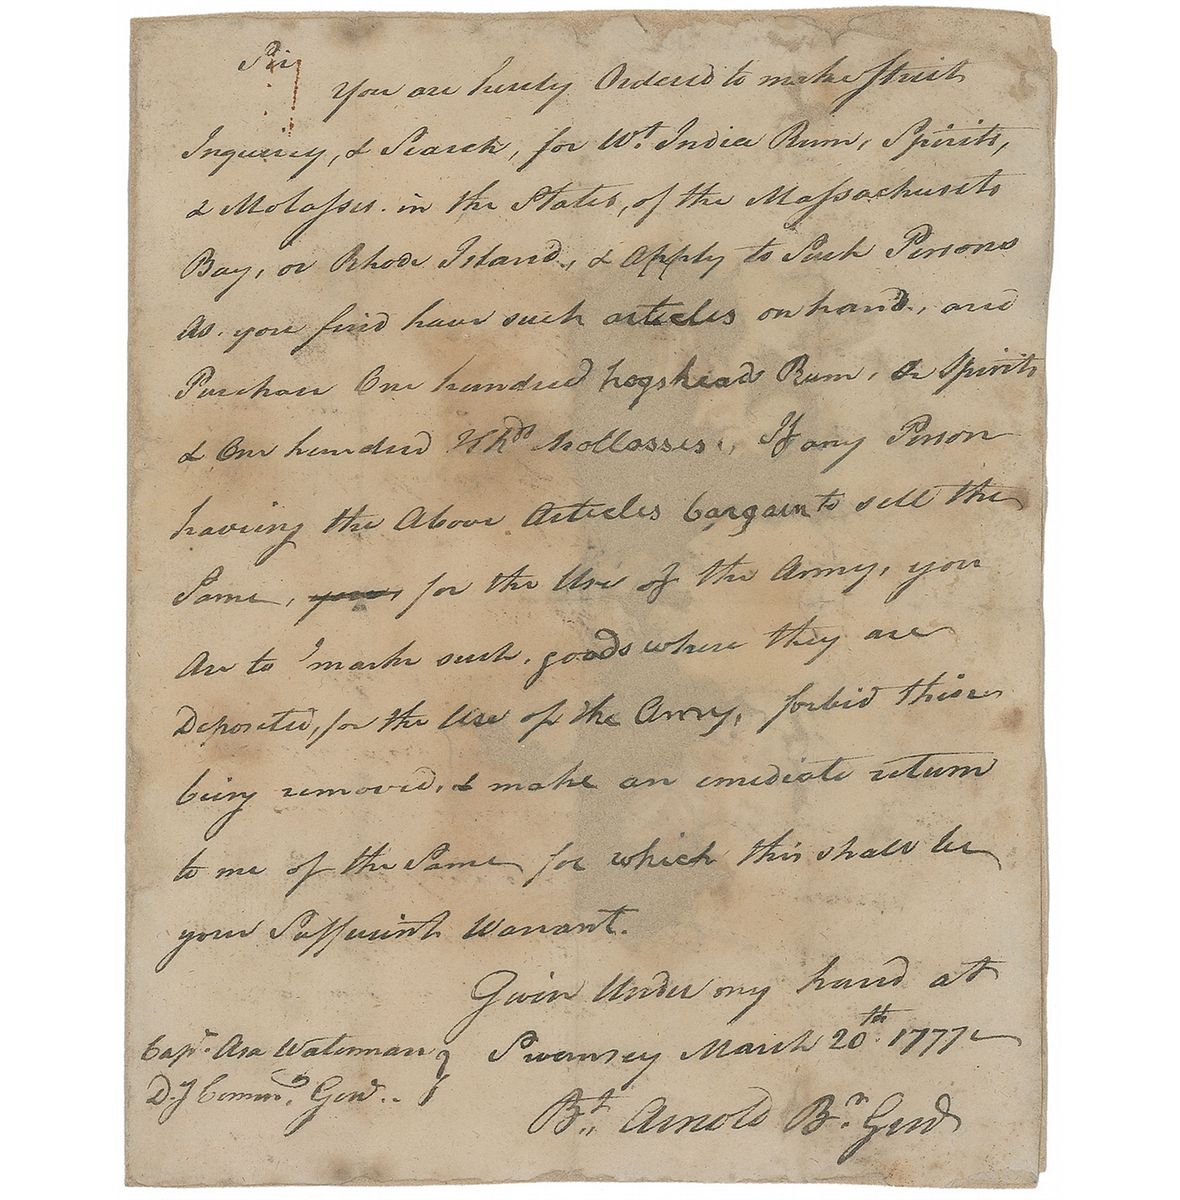 Sir
You are hereby Ordered to make Strict
Inquiery, & Search, for Wt. India Rum, Spirits,
& Molasses. in the States, of the Massachusets
Bay, or Rhode Island, & Apply to Such Persons
As. you find have such articles on hand, and
Purchase One hundred hogsheads Rum, & Spirits
& One hundred Hhds Mollasses., If any Person
having the Above Articles bargain to sell the
Same, for the Use of the Army, you
Are to mark such. goods where they are
Deposited, for the Use of the Army, forbid their
being removed, & make an emediate return
to me of the Same for which this shall be
your Suffucint Warrant.
Givin Under my hand at
Swansey March 20th. 1777
Capt. Asa Waterman
D.y Commy. Genl..
Bt. Arnold Br. Genl